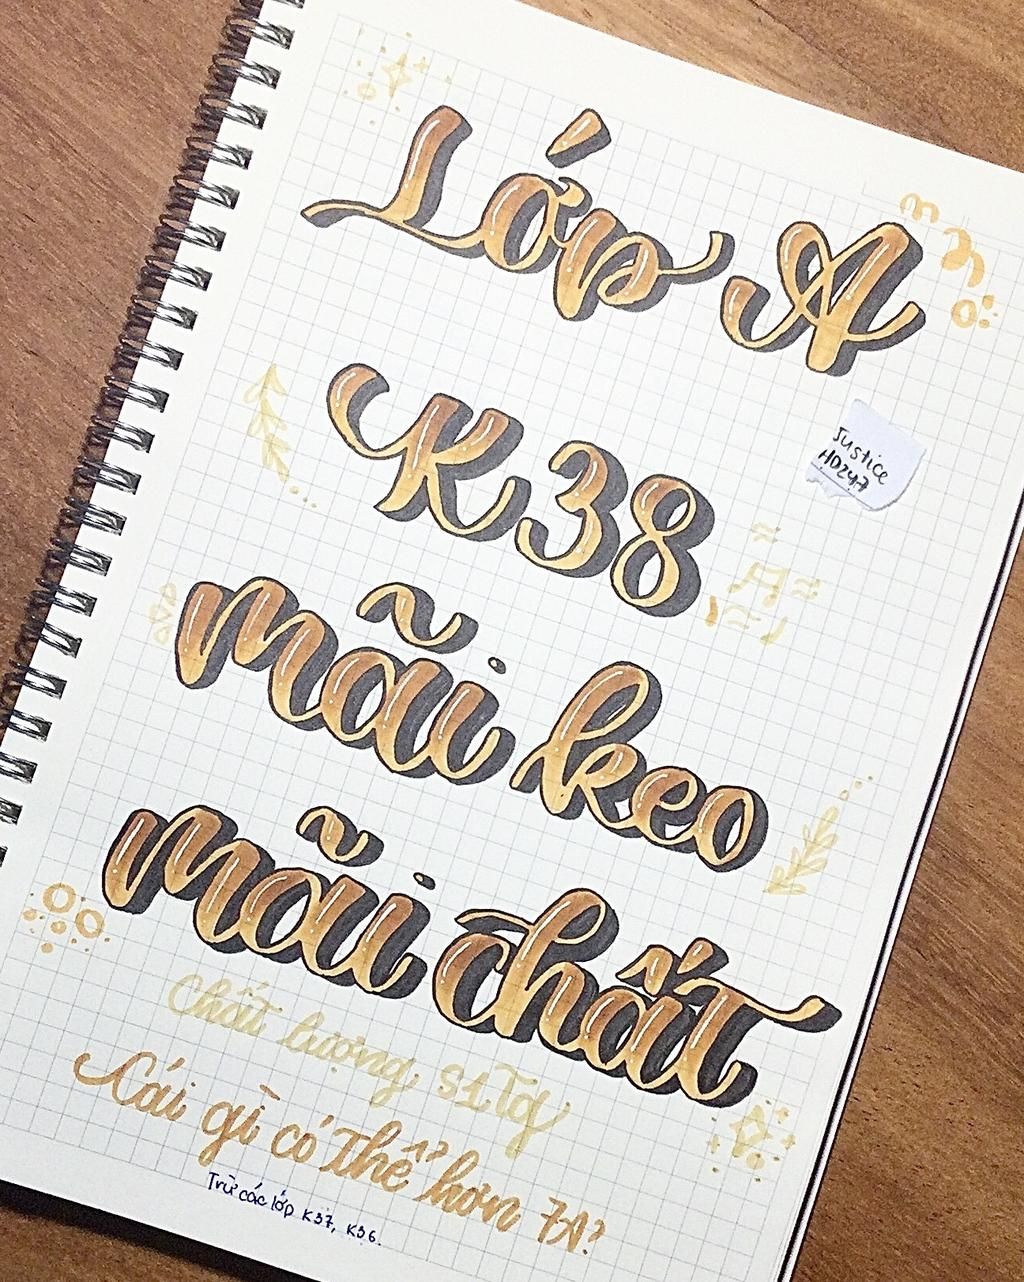 Lớp A
K38
Justice
HD247
mãi keo
mãi chất
Chất lượng s1Tg
Cái gì có Thể hơn 7A?
Trừ các lớp K37, K36.